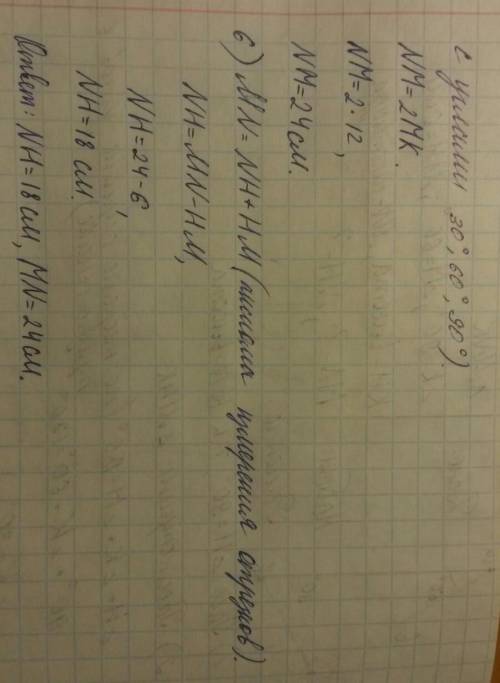 с углами 30°, 60°, 90°).
NM=2MK.
NM=2·12,
NM=24см.
6) MN=NH+HM (аксиома измерения отрезков).
NH=MN-HM,
NH=24-6,
NH=18 см.
Ответ: NH=18см, MN=24см.